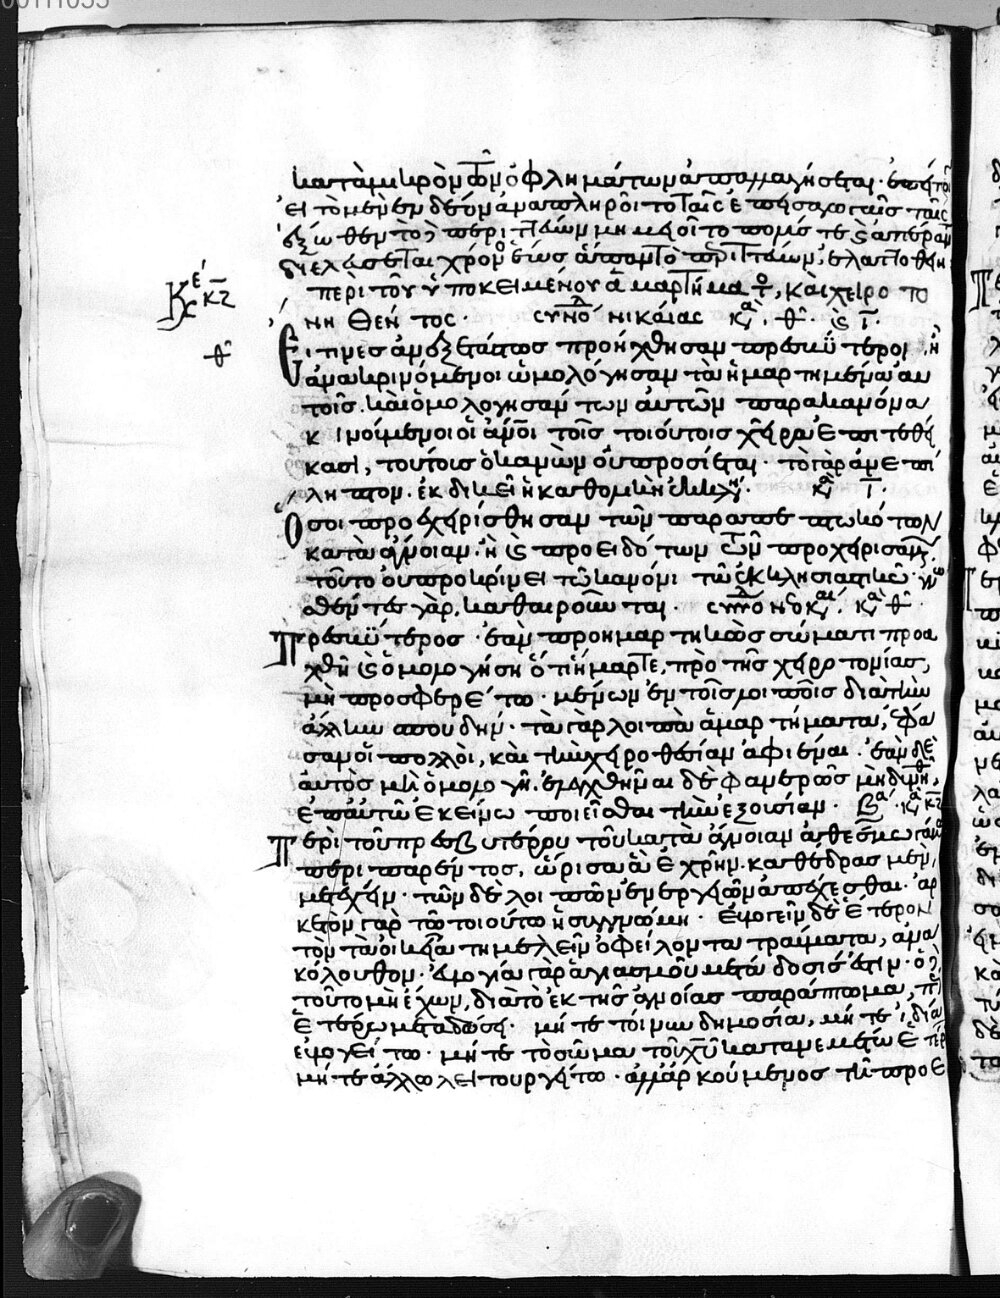 00111055
κατὰ μικρὸν τῶν ὀφλημάτων ἀπαλλαγήσεται·
εἰ τὸ μὲν ἔνδεον ἀναπληροῖ τὸ ταῖς
ἔξωθεν τὸ περιττεῦον
διελάσεται χρόνος ἕως ἄπο
περὶ τοῦ ὑποκειμένου ἁμαρτήμασι, καὶ χειροτο
κε κϛ
νηθέντος· συνό νικαίας κα. θ. ϛ ι.
θ
Εἴ τινες ἀνεξετάστως προήχθησαν πρεσβύτεροι, ἢ
ἀνακρινόμενοι ὡμολόγησαν τὰ ἡμαρτημένα αὐ
τοῖς. καὶ ὁμολογησάντων αὐτῶν παρὰ κανόνα
κινούμενοι οἱ ἄνοι τοῖς τοιούτοις χεῖρα ἐπιτεθεί
κασι, τούτους ὁ κανὼν οὐ προσίεται· τὸ γὰρ ἀνεπί
ληπτον ἐκδικεῖ ἡ καθολικὴ ἐκκλη. κα ι
Ὅσοι προεχειρίσθησαν τῶν παραπεπτωκότων
κατὰ ἄγνοιαν ἢ ϛ προειδότων τῶν προχειρισαμ.
τοῦτο οὐ προκρίνει τῷ κανόνι τῷ ἐκκλησιαστικῷ· γνω
σθέντες γὰρ, καθαιροῦνται. συνό νεοκαι. κα θ
Πρεσβύτερος ἐὰν προημαρτηκὼς σώματι προα
χθῇ ϛ ὁμολογήση ὅτι ἥμαρτε, πρὸ τῆς χειροτονίας,
μὴ προσφερέτω· μένων ἐν τοῖς λοιποῖς διὰ τὴν
ἄλλην σπουδήν· τὰ γὰρ λοιπὰ ἁμαρτήματα, ἔφα
σαν οἱ πολλοὶ, καὶ τὴν χειροθεσίαν ἀφιέναι. ἐὰν δὲ
αὐτὸς μὴ ὁμολογῇ. ἐλεγχθῆναι δὲ φανερῶς μὴ δυνηθῇ,
ἐπ αὐτῷ ἐκείνῳ ποιεῖσθαι τὴν ἐξουσίαν. βα. κα κζ
Περὶ τοῦ πρεσβυτέρου τοῦ κατὰ ἄγνοιαν ἀθέσμω γάμω
περιπαρέντος, ὥρισα ἃ ἐχρῆν. καθέδρας μὲν,
μετέχειν. τῶν δὲ λοιπῶν ἐνεργειῶν ἀπέχεσθαι. ἀρ
κετὸν γὰρ τῷ τοιούτω ἡ συγγνώμη. εὐλογεῖν δὲ ἕτερον
τὸν τὰ οἰκεῖα τημελεῖν ὀφείλοντα τραύματα, ἀνα
κόλουθον. εὐλογία γὰρ ἁγιασμοῦ μετάδοσίς ἐστιν. ὁ
τοῦτο μὴ ἔχων, διὰ τὸ ἐκ τῆς ἀγνοίας παράπτωμα, πῶς
ἑτέρω μεταδώσει. μήτε τοίνυν δημοσία, μήτε ἰδία
εὐλογείτω. μήτε τὸ σῶμα τοῦ χυ κατανεμέτω ἑτέρ
μήτε ἄλλο λειτουργείτω. ἀλλ ἀρκούμενος τῇ προε